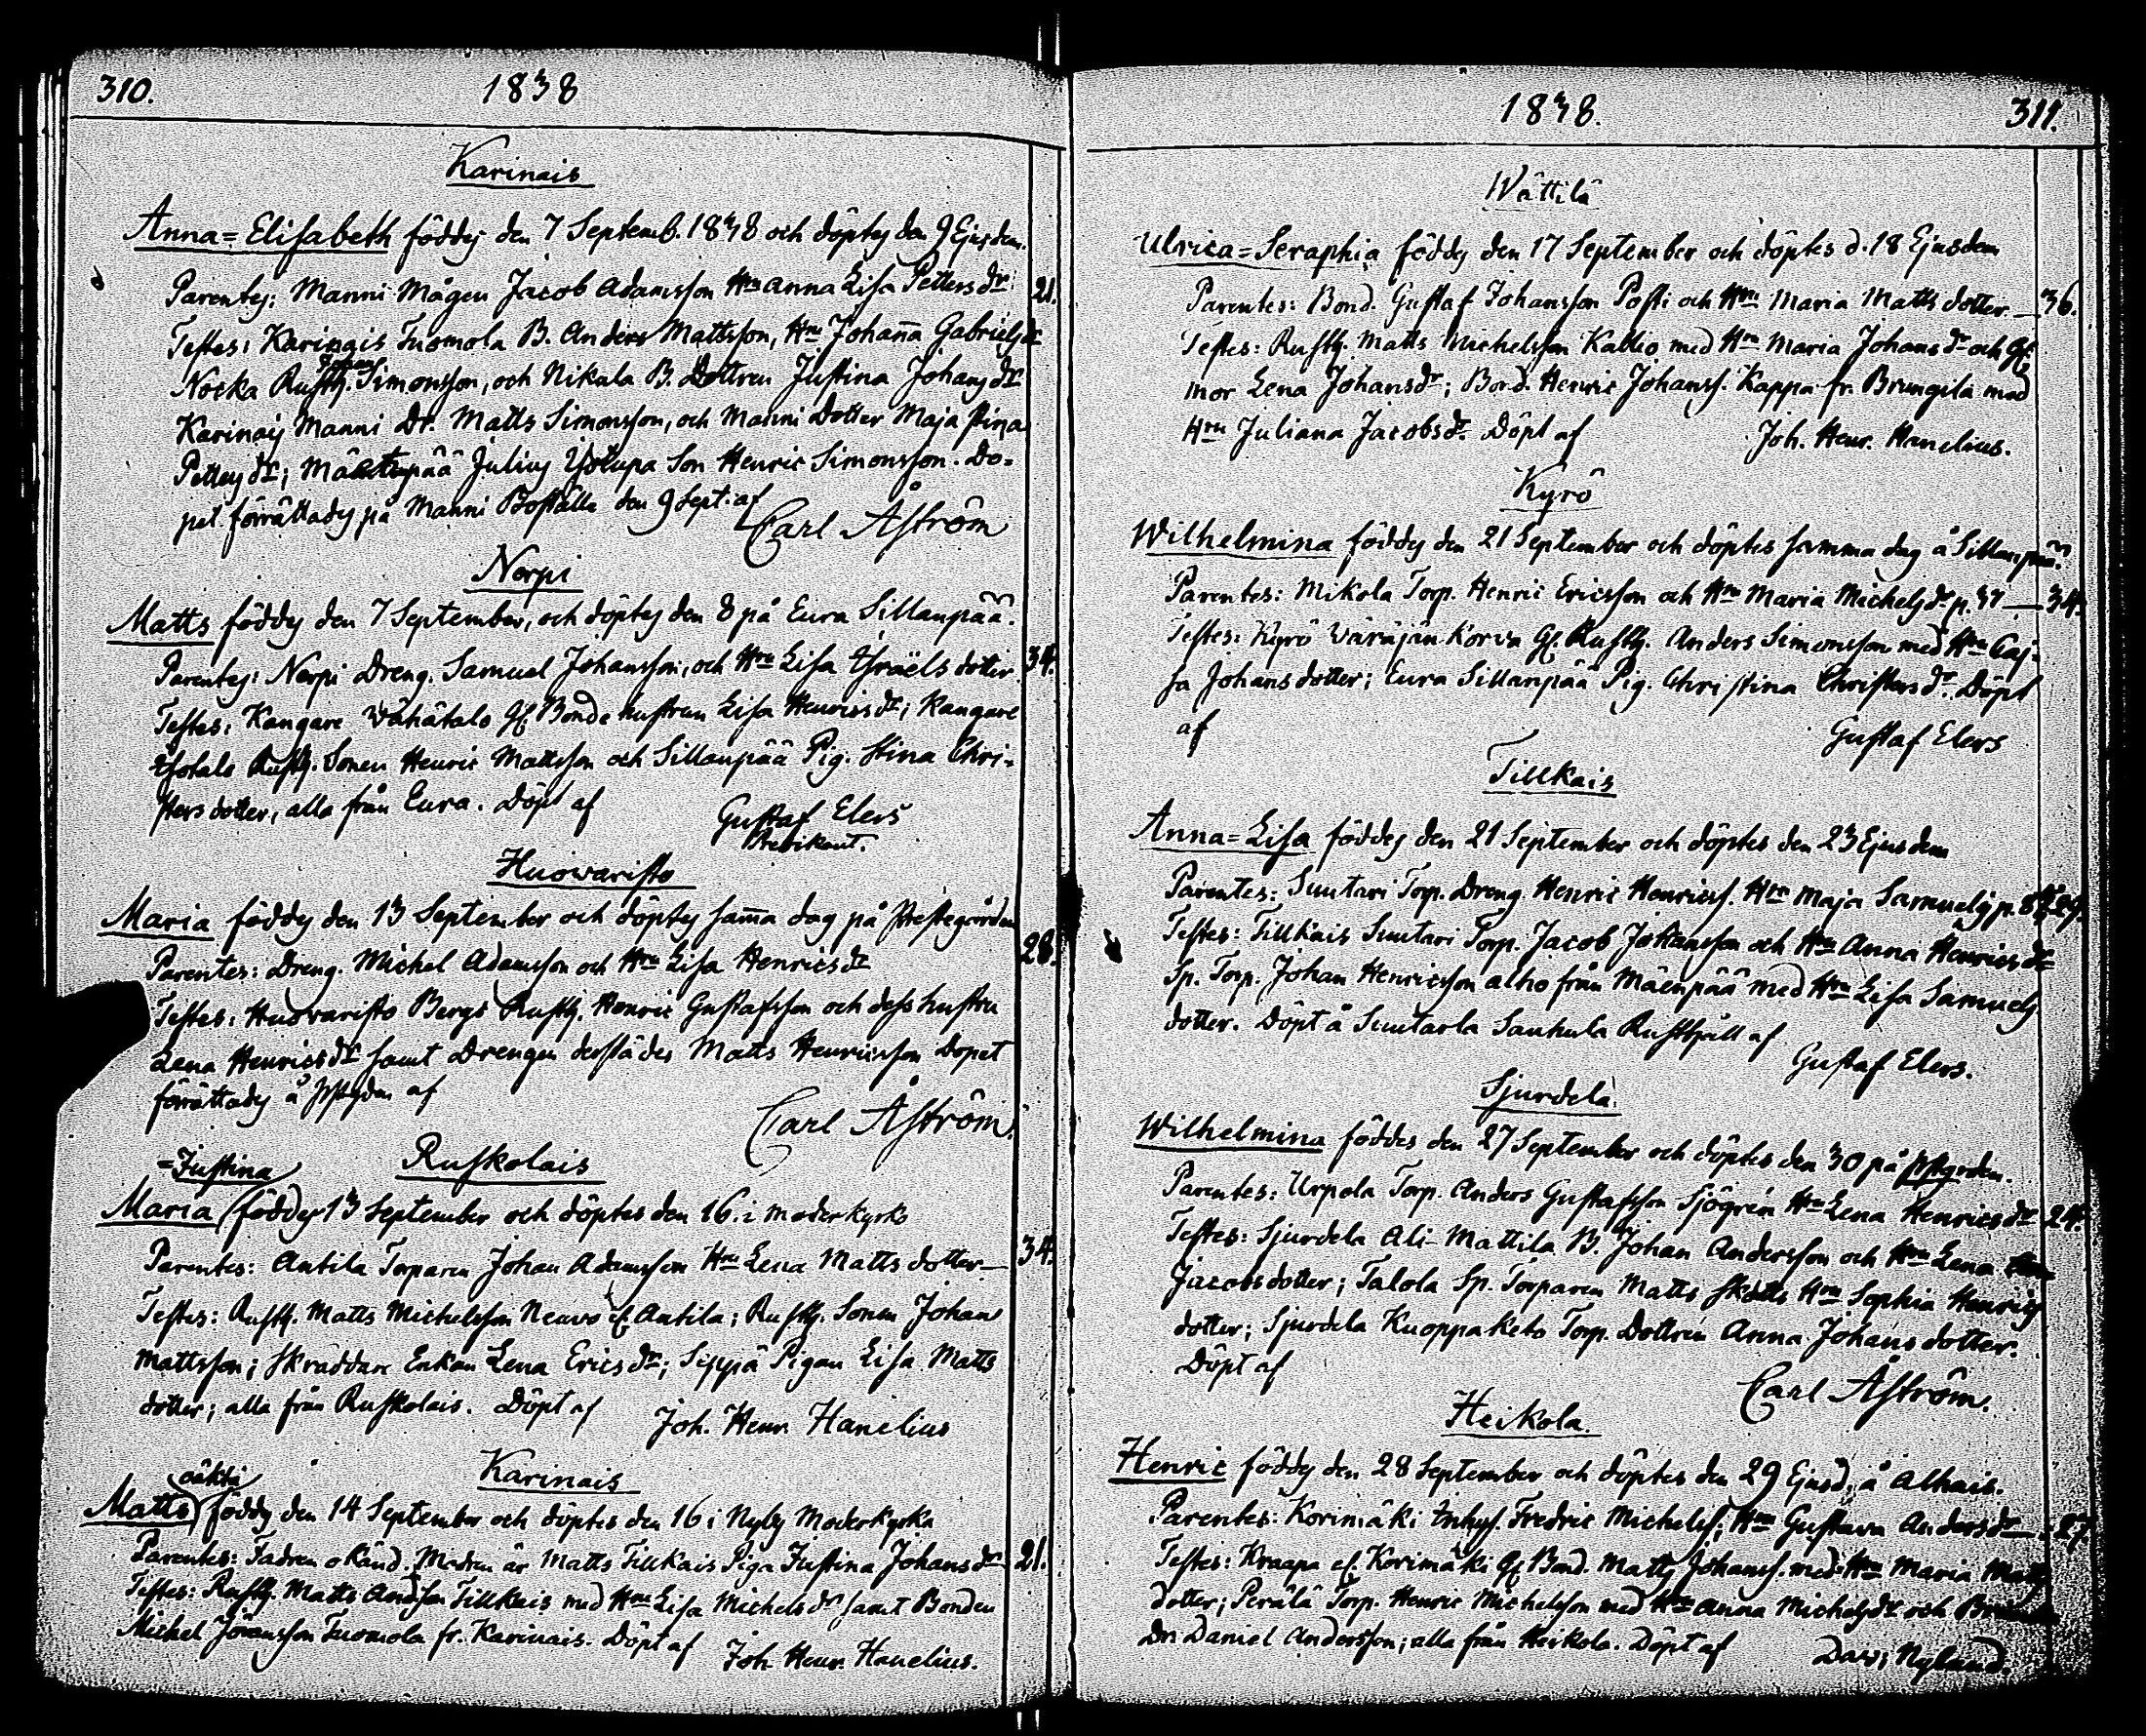 310. 1838
Karinais
Anna=Elisabeth föddes den 7 Septemb. 1838 och döptes den 9 Ejusdem.
Parentes: Manni Mågen Jacob Adamsson Hru Anna Lisa Petters dr: 21.
Testes: Karinais Tuomola B. Anders Mattsson, Hru Johan̄a Gabriels dr
Nocka Rusth. Johan Simonsson, och Nikala B. Dottren Justina Johans dr
Karinais Manni Dr. Matts Simonsson, och Manni Dotter Maja Stina
Petters dr; Julius Son Henric Simonsson. Do=
pet förrättades på Manni Boställe den 9 Sept. af
Carl Åström
Norpi
Matts föddes den 7 September, och döptes den 8 på Eura Sillanpää.
Parentes: Norpi Dreng. Samuel Johansson, och Hru Lisa Israëls dotter. 34.
Testes: Kangare Wähätalo Gl. Bonde hustrun Lisa Henrics dr; Kangare
Isotalo Rusth. Sonen Henric Mattsson och Sillanpää Pig. Stina Chri-
sters dotter, alla från Eura. Döpt af
Gustaf Elers
Predikant.
Huovaristo
Maria föddes den 13 September och döptes sam̄a dag på Prestegården
Parentes: Dreng. Michel Adamsson och Hru Lisa Henrics dr 28.
Testes: Huovaristo Bergs Rusth. Henric Gustafsson och dess hustru
Lena Henrics dr samt Drengen derstädes Matts Henricsson Dopet
förrättades å Pstgden af
Carl Åström.
Ruskolais
=Justina
Maria föddes 13 September och döptes den 16. i moderkyrko
Parentes: Antila Torparen Johan Adamsson Hru Lena Matts dotter— 34.
Testes: Rusth. Matts Michelsson Neuvo el. Antila; Rusth. Sonen Johan
Mattsson; Skräddare Enkan Lena Erics dr; Seppä Pigan Lisa Matts
dotter; alla från Ruskolais. Döpt af
Joh. Henr. Hanelius
Karinais
oäkta
Matts föddes den 14 September och döptes den 16 i Nyby Moderkyrka
Parentes: Fadren okänd. Modren är Matts Tillkais Piga Justina Johans dr 21.
Testes: Rusth. Matts Andsson Tillkais med Hru Lisa Michels dr samt Bonden
Michel Jöransson Tuomola fr. Karinais. Döpt af
Joh. Henr. Hanelius.
1838. 311.
Wättilä
Ulrica=Seraphia föddes den 17 September och döptes d. 18 Ejusdem
Parentes: Bond. Gustaf Johansson Posti och Hru Maria Matts dotter.— 36.
Testes: Rusth. Matts Michelsson Kallio med Hru Maria Johans dr och Gl.
mor Lena Johansdr; Bond. Henric Johanss. Kappa fr. Brungila med
Hru Juliana Jacobsdr. Döpt af Joh. Henr. Hanelius.
Kyrö
Wilhelmina föddes den 21 September och döptes samma dag å Sillanpää.
Parentes: Mikola Torp. Henric Ericsson och Hru Maria Michels dr p. 37— 34.
Testes: Kyrö Väräjän Korva Gl. Rusth. Anders Simonsson med Hru Caj-
sa Johans dotter; Eura Sillanpää Pig. Christina Christers dr. Döpt
af Gustaf Elers
Tillkais
Anna=Lisa föddes den 21 September och döptes den 23 Ejusdem
Parentes: Suutari Torp. Dreng. Henric Henricss. Hru Maja Samuels
Testes: Tillkais Suutari Torp. Jacob Johansson och Hru Anna Henrics dr
Sp. Torp. Johan Henricsson Alho från Mäenpää med Hru Lisa Samuels
dotter. Döpt å Suutarla Sauhula Rusthåll af
Gustaf Elers.
Sjurdela
Wilhelmina föddes den 27 September och döptes den 30 på Pstgrden.
Parentes: Urpola Torp. Anders Gustafsson Sjögrén Hru Lena Henrics dr 24.
Testes: Sjurdela Ali-Mattila B. Johan Andersson och Hru Lena
Jacobsdotter; Talola Sp. Torparen Matts Skötts Hru Sophia Henrics
dotter; Sjurdela Kuoppaketo Torp. Dottren Anna Johans dotter.
Döpt af
Carl Åström.
Heikola.
Henric föddes den 28 September och döptes den 29 Ejusd. å Alhais.
Parentes: Korimäki Inhys. Fredric Michelss; Hru Gustava Anders dr— 27.
Testes: Kraapa el. Korimäki Gl. Bond. Matts Johanss. med Hru Maria Matts
dotter; Perälä Torp. Henric Michelsson med Hru Anna Michels dr och
Dr. Daniel Andersson; alla från Heikola. Döpt af Dav. Nylund.